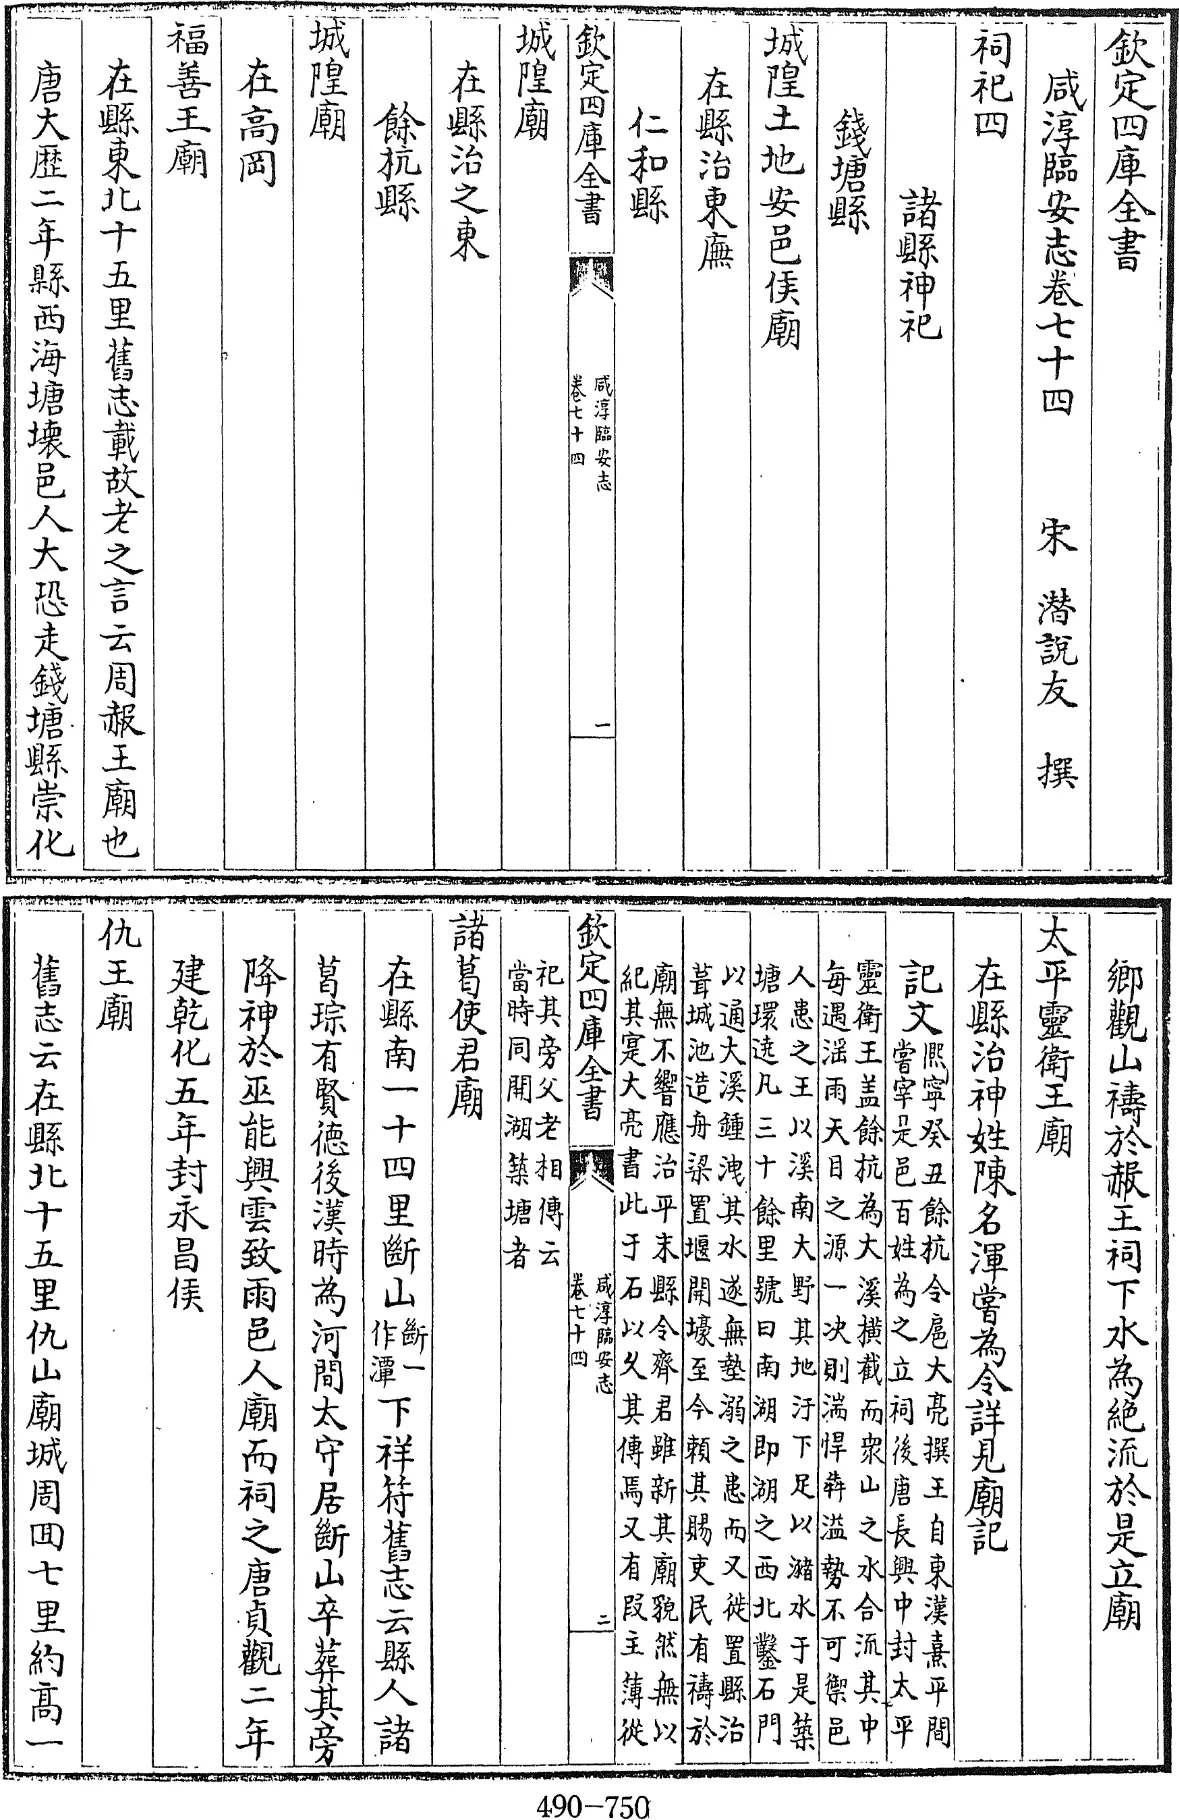 欽定四庫全書
咸淳臨安志卷七十四　宋　潛說友　撰
祠祀四
諸縣神祀
錢塘縣
城隍土地安邑侯廟
在縣治東廡
仁和縣
欽定四庫全書
咸淳臨安志
卷七十四
一
城隍廟
在縣治之東
餘杭縣
城隍廟
在高岡
福善王廟
在縣東北十五里舊志載故老之言云周赧王廟也
唐大歷二年縣西海塘壞邑人大恐走錢塘縣崇化
鄉觀山禱於赧王祠下水為絕流於是立廟
太平靈衛王廟
在縣治神姓陳名渾嘗為令詳見廟記
記文
熈寧癸丑餘杭令扈大亮撰王自東漢熹平間
嘗宰是邑百姓為之立祠後唐長興中封太平
靈衛王盖餘杭為大溪橫截而衆山之水合流其中
每遇滛雨天目之源一决則湍悍犇溢勢不可禦邑
人患之王以溪南大野其地汙下足以瀦水于是築
塘環遶凡三十餘里號曰南湖即湖之西北鑿石門
以通大溪鍾洩其水遂無墊溺之患而又徙置縣治
葺城池造舟梁置堰開壕至今賴其賜吏民有禱於
廟無不響應治平末縣令齊君雖新其廟貌然無以
紀其寔大亮書此于石以久其傳焉又有叚主薄從
欽定四庫全書
咸淳臨安志
卷七十四
二
祀其旁父老相傳云
當時同開湖築塘者
諸葛使君廟
在縣南一十四里斷山斷一作潭下祥符舊志云縣人諸
葛琮有賢德後漢時為河間太守居斷山卒葬其旁
降神於巫能興雲致雨邑人廟而祠之唐貞觀二年
建乾化五年封永昌侯
仇王廟
舊志云在縣北十五里仇山廟城周囬七里約髙一
490-750